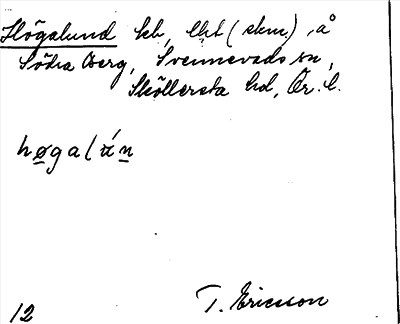 Högalund lht, lht (skm.), å
Södra Berg, Svennevads sn,
Sköllersta hd, Ör. l.
høgalún
12 T. Ericsson